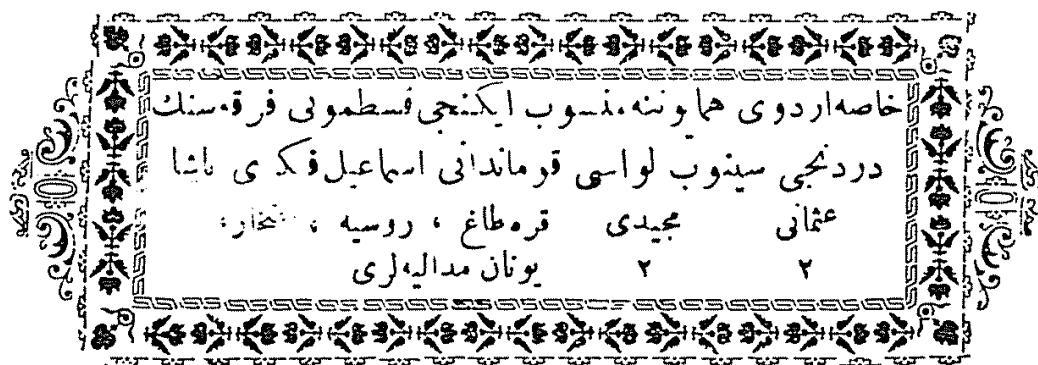 خاصه اردوی همایوننه منسوب ایکنجی قسطمونی فرقه‌سنك
دردنجی سینوب لواسی قوماندانی اسماعیل فکری پاشا
عثمانی مجیدی قره‌طاغ ، روسیه ، افتخار،
۲ ۲ یونان مدالیه‌لری